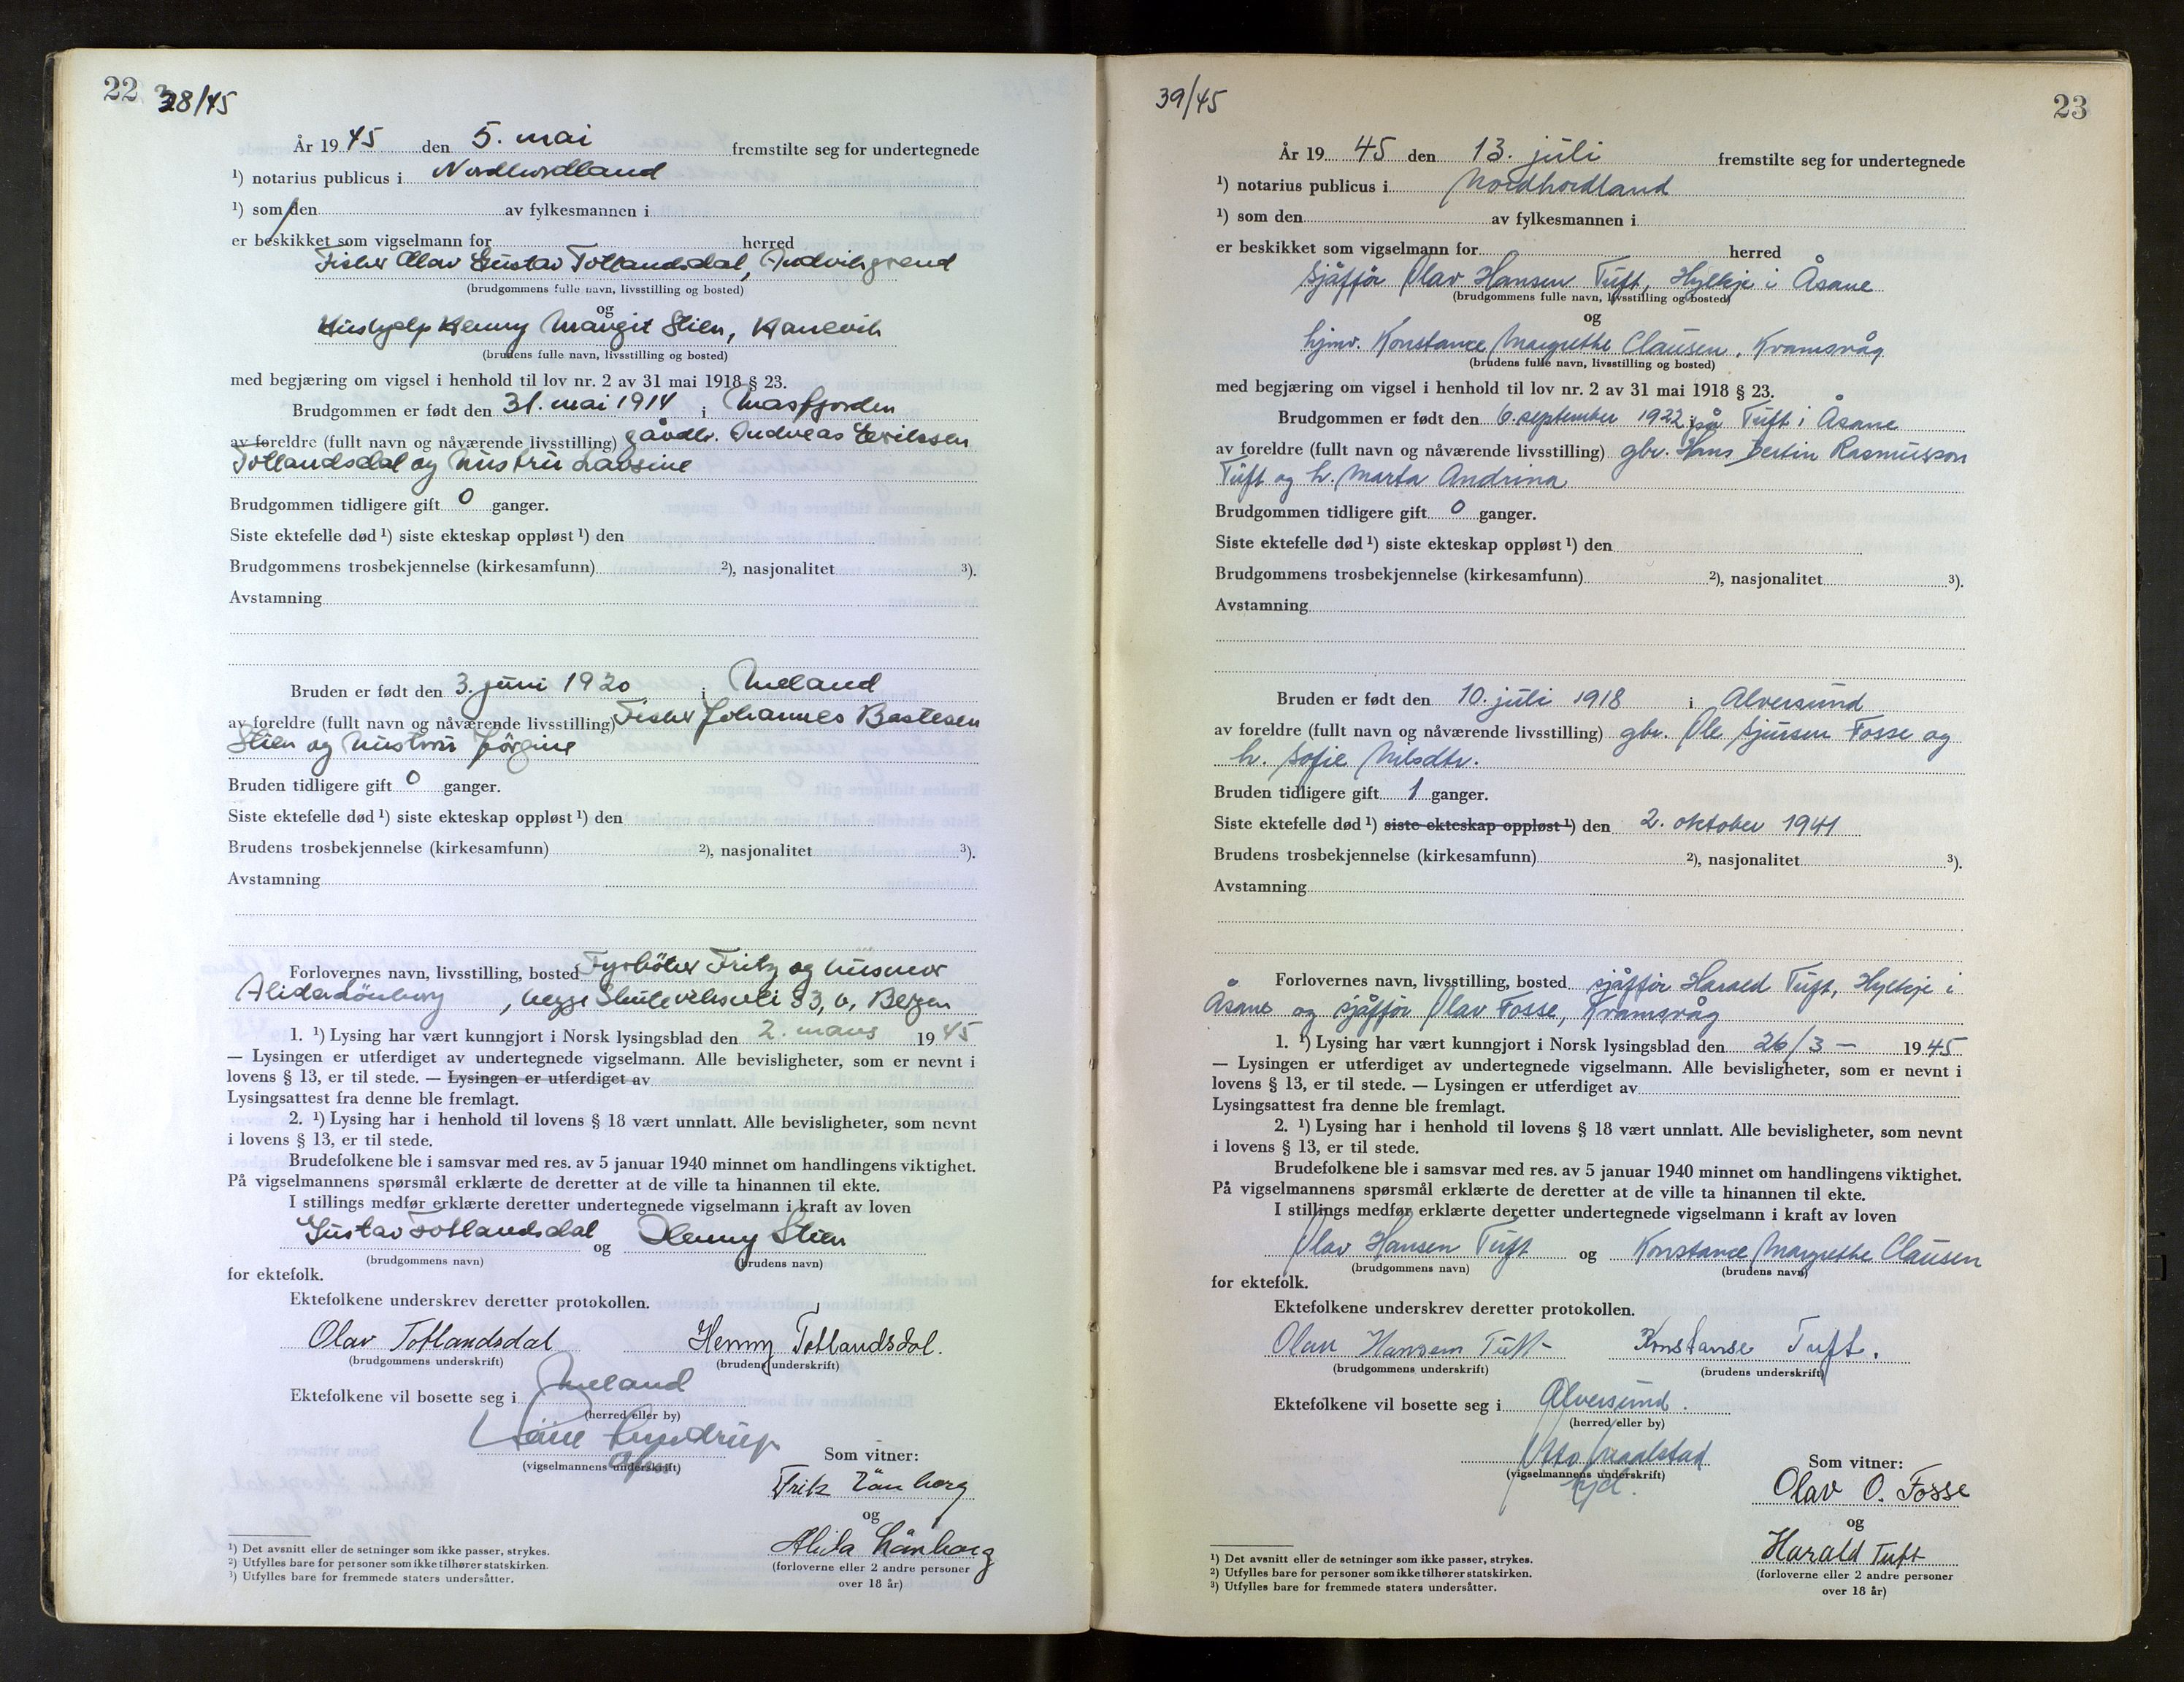 22 38/45
År 1945 den 5. mai fremstilte seg for undertegnede
¹) notarius publicus i Nordhordland
¹) som den av fylkesmannen i
er beskikket som vigselmann for herred
Fisker Olav Gustav Totlandsdal, Andvikgrend
(brudgommens fulle navn, livsstilling og bosted)
og
Hushjelp Henny Margit Stien,
(brudens fulle navn, livsstilling og bosted)
med begjæring om vigsel i henhold til lov nr. 2 av 31 mai 1918 § 23.
Brudgommen er født den 31. mai 1914 i Masfjorden
av foreldre (fullt navn og nåværende livsstilling) gårdbr. Andreas Eerikssen
Totlandsdal og hustru Lavsine
Brudgommen tidligere gift 0 ganger.
Siste ektefelle død ¹) siste ekteskap oppløst ¹) den
Brudgommens trosbekjennelse (kirkesamfunn) ²), nasjonalitet ³).
Avstamning
Bruden er født den 3. juni 1920 i Meland
av foreldre (fullt navn og nåværende livsstilling) Fisker Johannes Bastesen
Stien og hustru Jørgine
Bruden tidligere gift 0 ganger.
Siste ektefelle død ¹) siste ekteskap oppløst ¹) den
Brudens trosbekjennelse (kirkesamfunn) ²), nasjonalitet ³).
Avstamning
Forlovernes navn, livsstilling, bosted Fyrbøter Fritz og husmor
Alida Lönborg, begge Skuteviksvei 33, b, Bergen
1. ¹) Lysing har vært kunngjort i Norsk lysingsblad den 2. mars 1945
— Lysingen er utferdiget av undertegnede vigselmann. Alle bevisligheter, som er nevnt i
lovens § 13, er til stede. — Lysingen er utferdiget av
Lysingsattest fra denne ble fremlagt.
2. ¹) Lysing har i henhold til lovens § 18 vært unnlatt. Alle bevisligheter, som nevnt
i lovens § 13, er til stede.
Brudefolkene ble i samsvar med res. av 5 januar 1940 minnet om handlingens viktighet.
På vigselmannens spørsmål erklærte de deretter at de ville ta hinannen til ekte.
I stillings medfør erklærte deretter undertegnede vigselmann i kraft av loven
Gustav Totlandsdal og Henny Stien
(brudgommens navn) (brudens navn)
for ektefolk.
Ektefolkene underskrev deretter protokollen.
Olav Totlandsdal Henny Totlandsdal.
(brudgommens underskrift) (brudens underskrift)
Ektefolkene vil bosette seg i Meland
(herred eller by)
(vigselmannens underskrift) Som vitner:
Fritz Lönborg
og
Alida Lönborg
(forloverne eller 2 andre personer
over 18 år)
¹) Det avsnitt eller de setninger som ikke passer, strykes.
²) Utfylles bare for personer som ikke tilhører statskirken.
³) Utfylles bare for fremmede staters undersåtter.
39/45 23
År 1945 den 13. juli fremstilte seg for undertegnede
¹) notarius publicus i Nordhordland
¹) som den av fylkesmannen i
er beskikket som vigselmann for herred
sjåffør Olav Hansen Tuft, Hylkje i Åsane
(brudgommens fulle navn, livsstilling og bosted)
og
hjmv. Konstance Margrethe Clausen, Kvamsvåg
(brudens fulle navn, livsstilling og bosted)
med begjæring om vigsel i henhold til lov nr. 2 av 31 mai 1918 § 23.
Brudgommen er født den 6. september 1922 i på Tuft i Åsane
av foreldre (fullt navn og nåværende livsstilling) gbr. Hans Bertin Rasmusson
Tuft og h. Marta Andrina
Brudgommen tidligere gift 0 ganger.
Siste ektefelle død ¹) siste ekteskap oppløst ¹) den
Brudgommens trosbekjennelse (kirkesamfunn) ²), nasjonalitet ³).
Avstamning
Bruden er født den 10. juli 1918 i Alversund
av foreldre (fullt navn og nåværende livsstilling) gbr. Ole Sjursen Fosse og
h. Sofie Nilsdtr.
Bruden tidligere gift 1 ganger.
Siste ektefelle død ¹) siste ekteskap oppløst ¹) den 2. oktober 1941
Brudens trosbekjennelse (kirkesamfunn) ²), nasjonalitet ³).
Avstamning
Forlovernes navn, livsstilling, bosted sjåffør Harald Tuft, Hylkje i
Åsane og sjåffør Olav Fosse, Kvamsvåg
1. ¹) Lysing har vært kunngjort i Norsk lysingsblad den 26/3 — 1945
— Lysingen er utferdiget av undertegnede vigselmann. Alle bevisligheter, som er nevnt i
lovens § 13, er til stede. — Lysingen er utferdiget av
Lysingsattest fra denne ble fremlagt.
2. ¹) Lysing har i henhold til lovens § 18 vært unnlatt. Alle bevisligheter, som nevnt
i lovens § 13, er til stede.
Brudefolkene ble i samsvar med res. av 5 januar 1940 minnet om handlingens viktighet.
På vigselmannens spørsmål erklærte de deretter at de ville ta hinannen til ekte.
I stillings medfør erklærte deretter undertegnede vigselmann i kraft av loven
Olav Hansen Tuft og Konstance Margrethe Clausen
(brudgommens navn) (brudens navn)
for ektefolk.
Ektefolkene underskrev deretter protokollen.
Olav Hansen Tuft Konstanse Tuft.
(brudgommens underskrift) (brudens underskrift)
Ektefolkene vil bosette seg i Alversund.
(herred eller by)
Otto
(vigselmannens underskrift) Som vitner:
Olav O. Fosse
og
Harald Tuft
(forloverne eller 2 andre personer
over 18 år)
¹) Det avsnitt eller de setninger som ikke passer, strykes.
²) Utfylles bare for personer som ikke tilhører statskirken.
³) Utfylles bare for fremmede staters undersåtter.